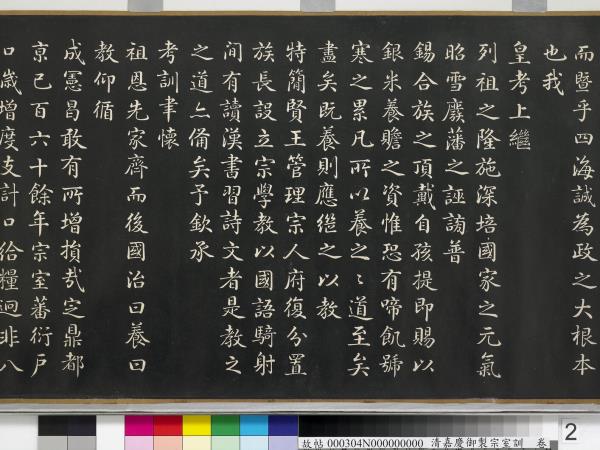 而暨乎四海誠為政之大根本
也我
皇考上繼
列祖之隆施深培國家之元氣
昭雪廢藩之誣謗普
錫合族之頂戴自孩提即賜以
銀米養贍之資惟恐有啼飢號
寒之累凡所以養之之道至矣
盡矣既養則應繼之以教
特簡賢王管理宗人府復分置
族長設立宗學教以國語騎射
間有讀漢書習詩文者是教之
之道亦備矣予欽承
考訓聿懷
祖恩先家齊而後國治曰養曰
教仰循
成憲曷敢有所增損哉定鼎都
京已百六十餘年宗室蕃衍戶
口歲增度支計口給糧迥非八
2
故帖 000304N000000000 清嘉慶御製宗室訓 卷